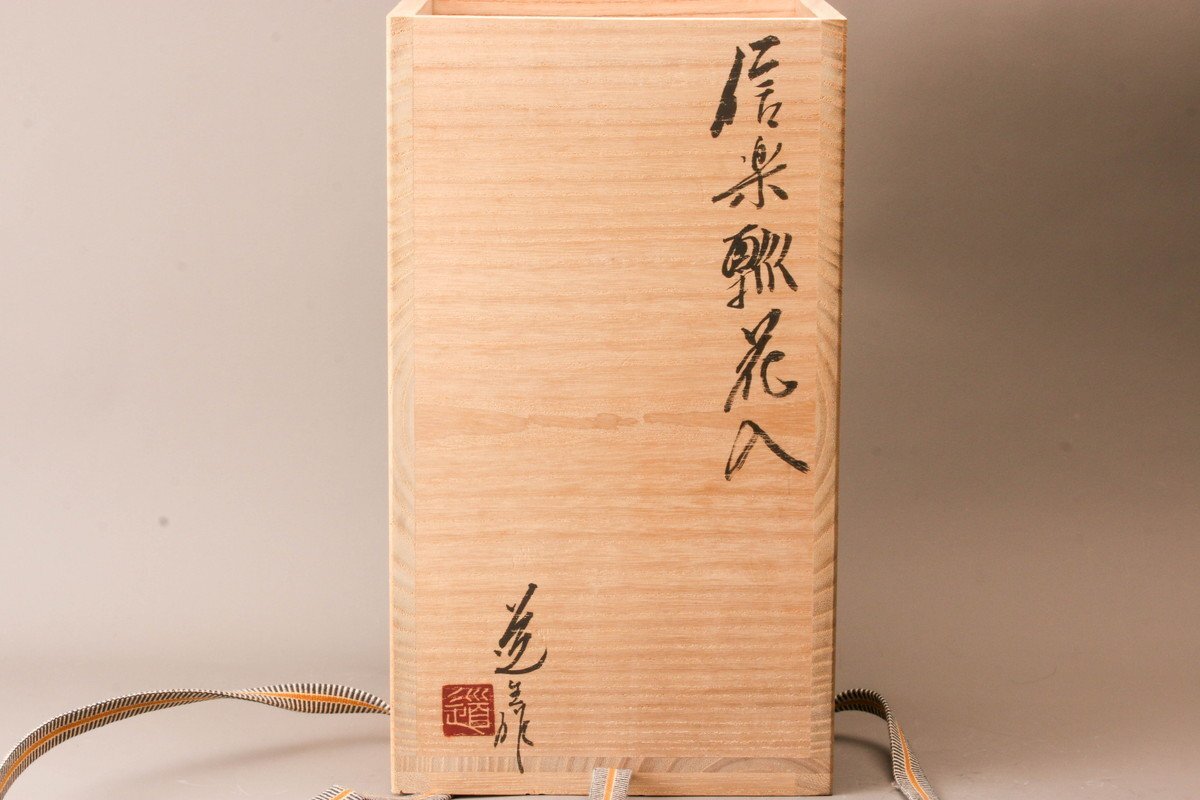 信楽瓢花入
道生作
道